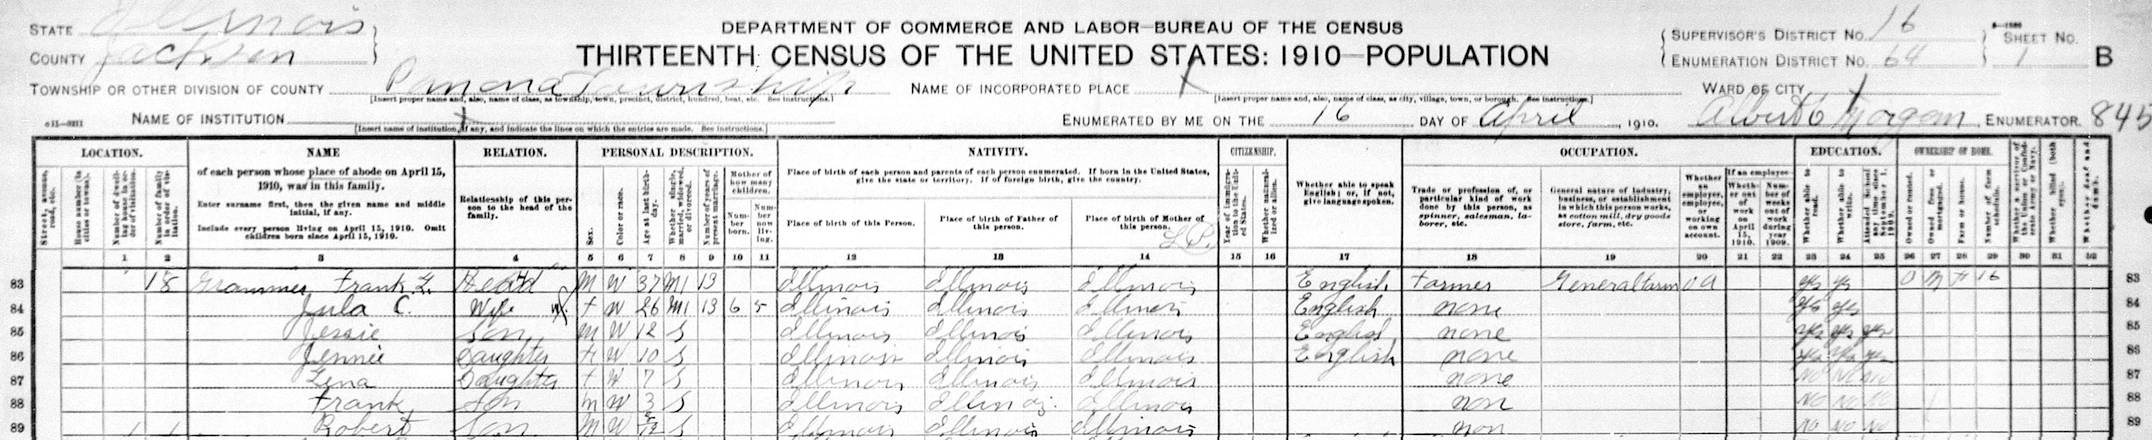 DEPARTMENT OF COMMERCE AND LABOR—BUREAU OF THE CENSUS
THIRTEENTH CENSUS OF THE UNITED STATES: 1910—POPULATION
STATE Illinois
COUNTY Jackson
TOWNSHIP OR OTHER DIVISION OF COUNTY Pomona Township
[Insert proper name and, also, name of class, as township, town, precinct, district, hundred, beat, etc. See instructions.]
NAME OF INSTITUTION X
[Insert name of institution, if any, and indicate the lines on which the entries are made. See instructions.]
NAME OF INCORPORATED PLACE X
[Insert proper name and, also, name of class, as city, village, town, or borough. See instructions.]
ENUMERATED BY ME ON THE 16 DAY OF April, 1910.
SUPERVISOR'S DISTRICT No. 16
ENUMERATION DISTRICT No. 64
SHEET No. 1 B
WARD OF CITY X
Albert C Morgan, ENUMERATOR. 845
LOCATION. NAME RELATION. PERSONAL DESCRIPTION. NATIVITY. CITIZENSHIP. OCCUPATION. EDUCATION. OWNERSHIP OF HOME.
of each person whose place of abode on April 15, 1910, was in this family.
Enter surname first, then the given name and middle initial, if any.
Include every person living on April 15, 1910. Omit children born since April 15, 1910.
Relationship of this person to the head of the family.
Sex.
Color or race.
Age at last birthday.
Whether single, married, widowed, or divorced.
Number of years of present marriage.
Mother of how many children.
Number born.
Number now living.
Place of birth of each person and parents of each person enumerated. If born in the United States, give the state or territory. If of foreign birth, give the country.
Place of birth of this Person.
Place of birth of Father of this person.
Place of birth of Mother of this person.
Year of immigration to the United States.
Whether naturalized or alien.
Whether able to speak English; or, if not, give language spoken.
Trade or profession of, or particular kind of work done by this person, as spinner, salesman, laborer, etc.
General nature of industry, business, or establishment in which this person works, as cotton mill, dry goods store, farm, etc.
Whether an employer, employee, or working on own account.
If an employee—
Whether out of work on April 15, 1910.
Number of weeks out of work during year 1909.
Whether able to read.
Whether able to write.
Attended school any time since September 1, 1909.
Owned or rented.
Owned free or mortgaged.
Farm or house.
Number of farm schedule.
Whether a survivor of the Union or Confederate Army or Navy.
Whether blind (both eyes).
Whether deaf and dumb.
1 2 3 4 5 6 7 8 9 10 11 12 13 14 15 16 17 18 19 20 21 22 23 24 25 26 27 28 29 30 31 32
83 18 Grammer, Frank L. Head M W 37 M1 13 Illinois Illinois Illinois English Farmer General farm OA yes yes O M F 16 83
84 Jula C. Wife F W 26 M1 13 6 5 Illinois Illinois Illinois English none yes yes 84
85 Jessie Son M W 12 S Illinois Illinois Illinois English none yes yes yes 85
86 Jennie Daughter F W 10 S Illinois Illinois Illinois English none yes yes yes 86
87 Lena Daughter F W 7 S Illinois Illinois Illinois none no no no 87
88 Frank Son M W 3 S Illinois Illinois Illinois non no no no 88
89 Robert Son M W S Illinois Illinois Illinois non no no no 89